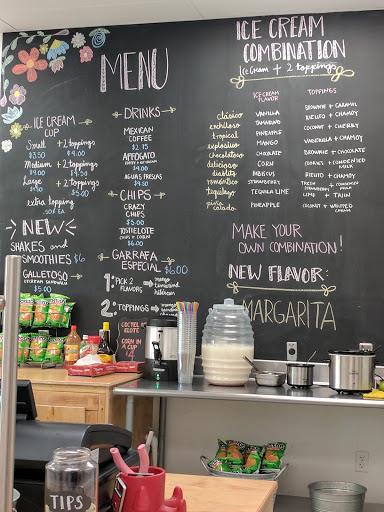 MENU
ICE CREAM CUP
Small + 2 toppings
$3.50 $4.00
Medium + 2 toppings
$4.00
Large + 2 toppings
$5.00
extra topping
.50¢ EA
NEW
SHAKES and
SMOOTHIES $6
GALLETOSO
$5.00
DRINKS
MEXICAN
COFFEE
$2.75
AFFOGATO
$4.00
AGUAS FRESAS
CHIPS
CRAZY
CHIPS
$5.00
TOSTIELOTE
CHIPS + CORN
$6.00
GARRAFA
ESPECIAL $6.00
1º PICK 2
FLAVORS
2º TOPPINGS
COCTEL DE
ELOTE
CORN IN
A CUP
ICE CREAM
COMBINATION
Ice Cream + 2 toppings
ICE CREAM
FLAVOR
TOPPINGS
clásico VANILLA BROWNIE + CARAMEL
enchiloso TAMARIND RIELITO + CHAMOY
tropical PINEAPPLE COCONUT + CHERRY
explosivo MANGO VANERILLA + CHAMOY
chocolatoso CHOCOLATE BROWNIE + CHOCOLATE
delicioso CORN COOKIES + CONDENSED MILK
diablito HIBISCUS RIELITO + CHAMOY
romántico STRAWBERRY FRESH STRAWBERRY + CONDENSED MILK
tequilazo TEQUILA LIME LIME + TAJIN
piña colada PINEAPPLE COCONUT + WHIPPED CREAM
MAKE YOUR
OWN COMBINATION!
NEW FLAVOR:
MARGARITA
TIPS